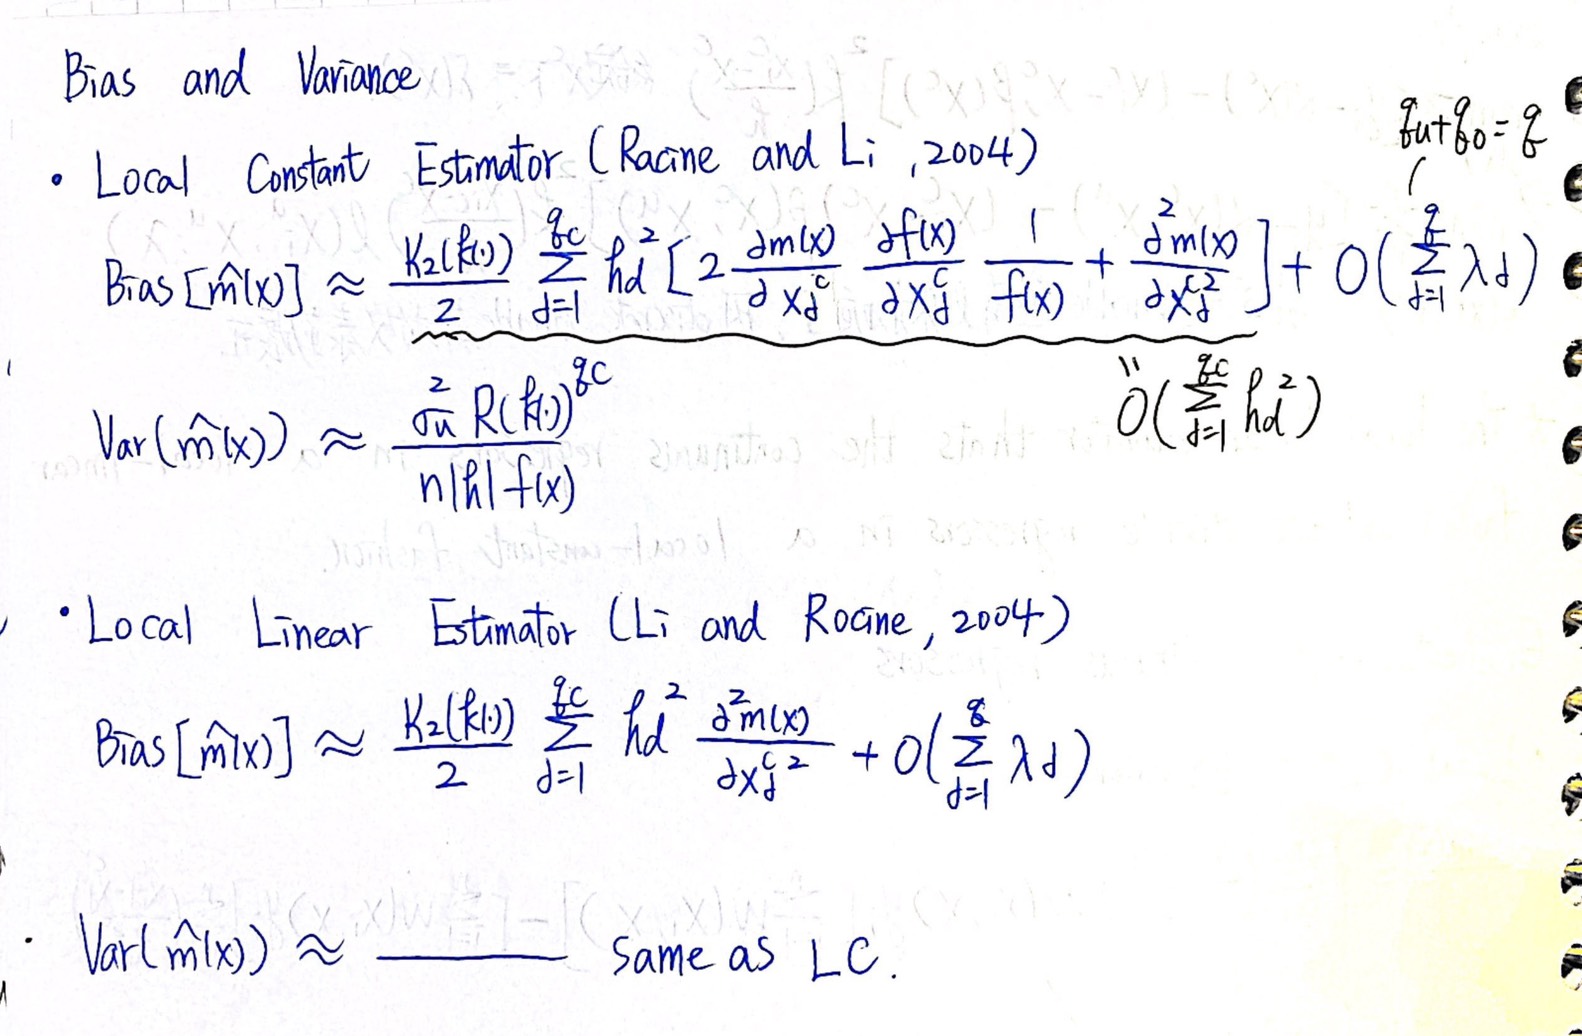 Bias and Variance
q_u+q_o = q
• Local Constant Estimator (Racine and Li, 2004)
Bias[m̂(x)] ≈ K₂(k(·))/2 Σ_{d=1}^{q_c} h_d² [2 ∂m(x)/∂x_d^c ∂f(x)/∂x_d^c 1/f(x) + ∂²m(x)/∂x_d^{c2}] + O(Σ_{d=1}^{q} λ_d)
" O(Σ_{d=1}^{q_c} h_d²)
Var(m̂(x)) ≈ σ_u² R(k(·))^{q_c} / n|h| f(x)
• Local Linear Estimator (Li and Rocine, 2004)
Bias[m̂(x)] ≈ K₂(k(·))/2 Σ_{d=1}^{q_c} h_d² ∂²m(x)/∂x_d^{c2} + O(Σ_{d=1}^{q} λ_d)
• Var(m̂(x)) ≈ ______ same as LC.